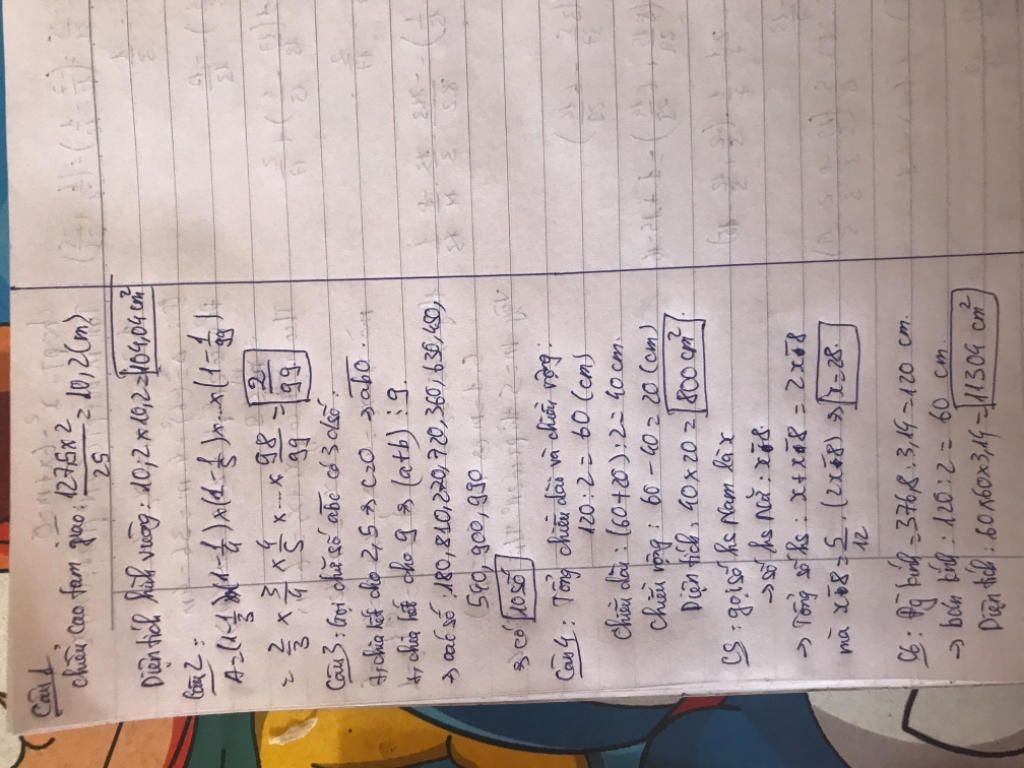 Câu 1,
chiều cao tam giác: 127,5 x 2 / 25 = 10,2 (cm)
Diện tích hình vuông: 10,2 x 10,2 = 104,04 cm²
Câu 2:
A = (1 - 1/3) x (1 - 1/4) x (1 - 1/5) x ... x (1 - 1/99)
= 2/3 x 3/4 x 4/5 x ... x 98/99 = 2/99
Câu 3: Gọi chữ số abc có 3 chữ số.
+, chia hết cho 2, 5 => c=0 → ab0
+, chia hết cho 9 => (a+b) ⋮ 9
→ các số: 180, 810, 270, 720, 360, 630, 450,
540, 900, 990
=> có 10 số
Câu 4: Tổng chiều dài và chiều rộng:
120 : 2 = 60 (cm)
chiều dài: (60+20) : 2 = 40 cm.
chiều rộng: 60 - 40 = 20 (cm)
Diện tích: 40 x 20 = 800 cm².
C5: gọi số hs Nam là x
→ số hs nữ: x 8.
→ Tổng số hs: x + x 8 = 2x 8
mà x 8 = 5/12 . (2x 8) → x = 28.
C6: Đg kính = 376,8 : 3,14 = 120 cm.
→ bán kính: 120 : 2 = 60 cm.
Diện tích: 60 x 60 x 3,14 = 11304 cm²